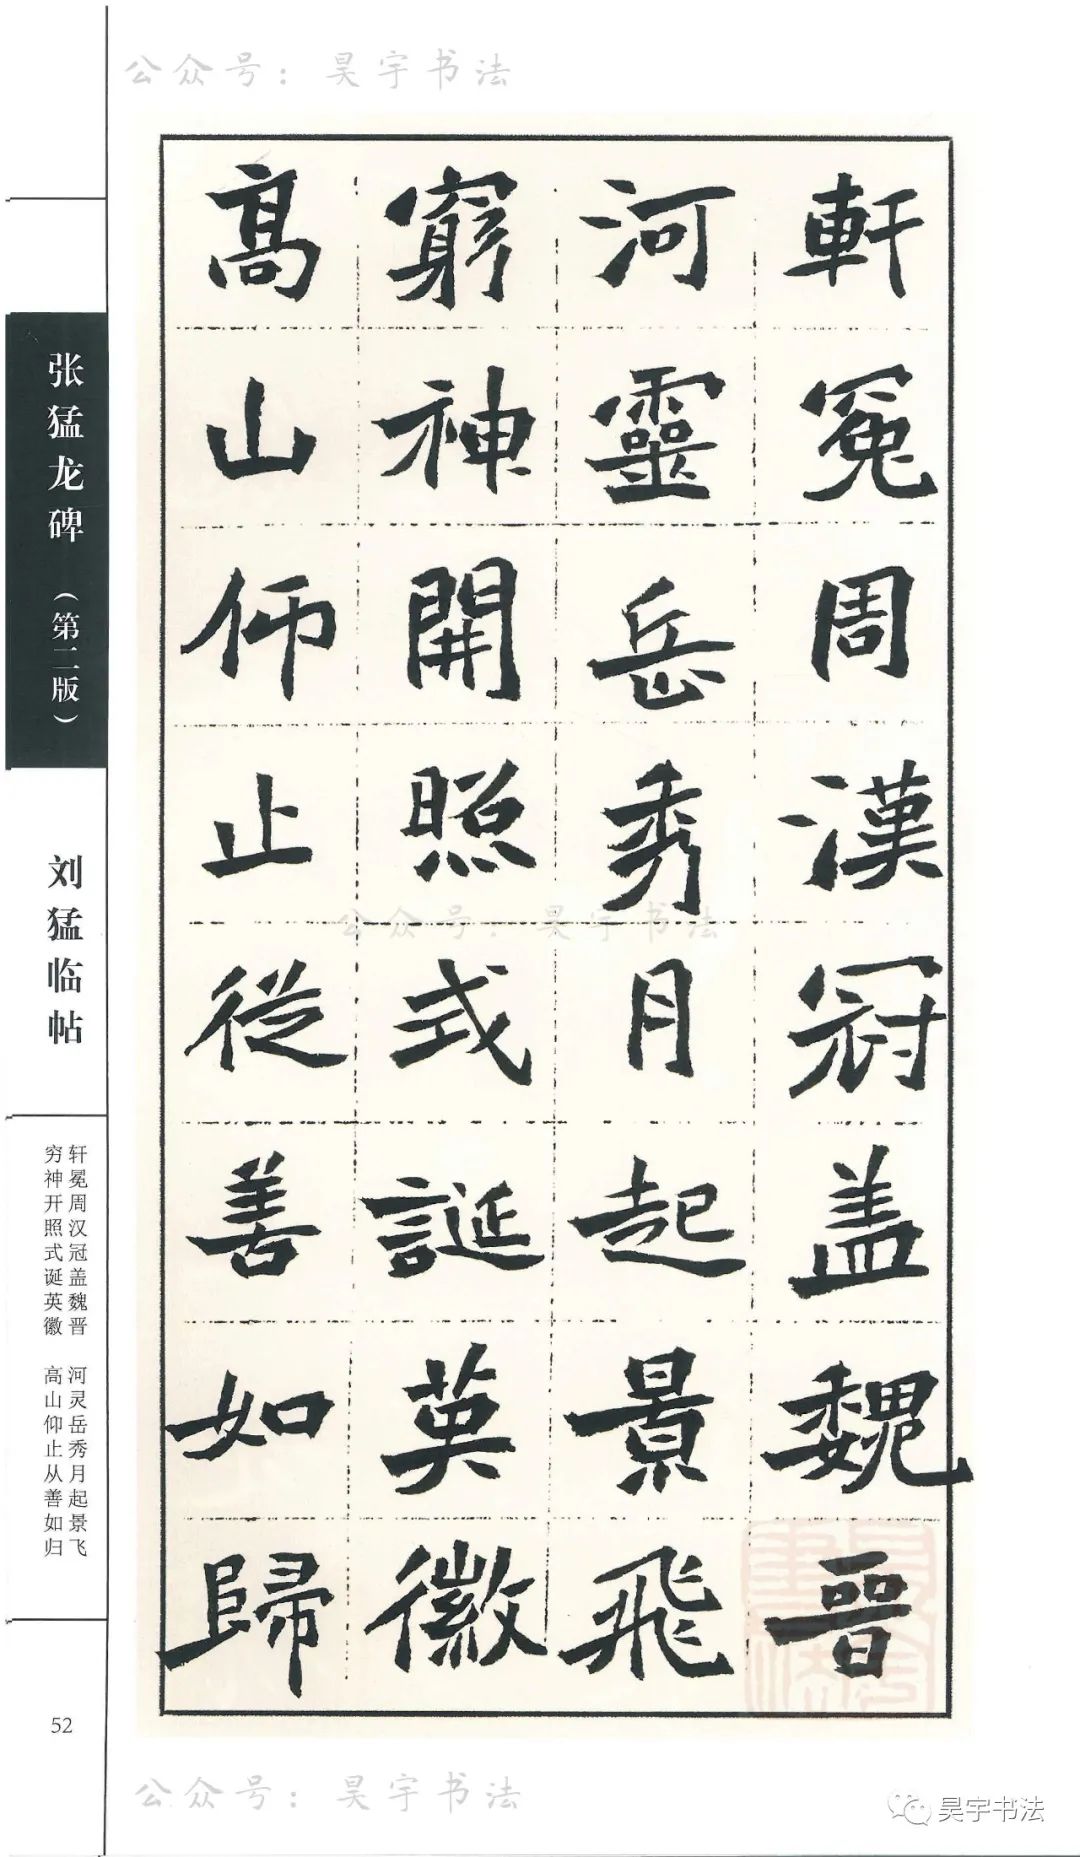 公众号：昊宇书法
軒冕周漢冠盖魏晉
河靈岳秀月起景飛
窮神開照式誕英徽
高山仰止從善如歸
张猛龙碑（第二版）
刘猛临帖
轩冕周汉冠盖魏晋 河灵岳秀月起景飞
穷神开照式诞英徽 高山仰止从善如归
52
公众号：昊宇书法
公众号：昊宇书法
昊宇书法